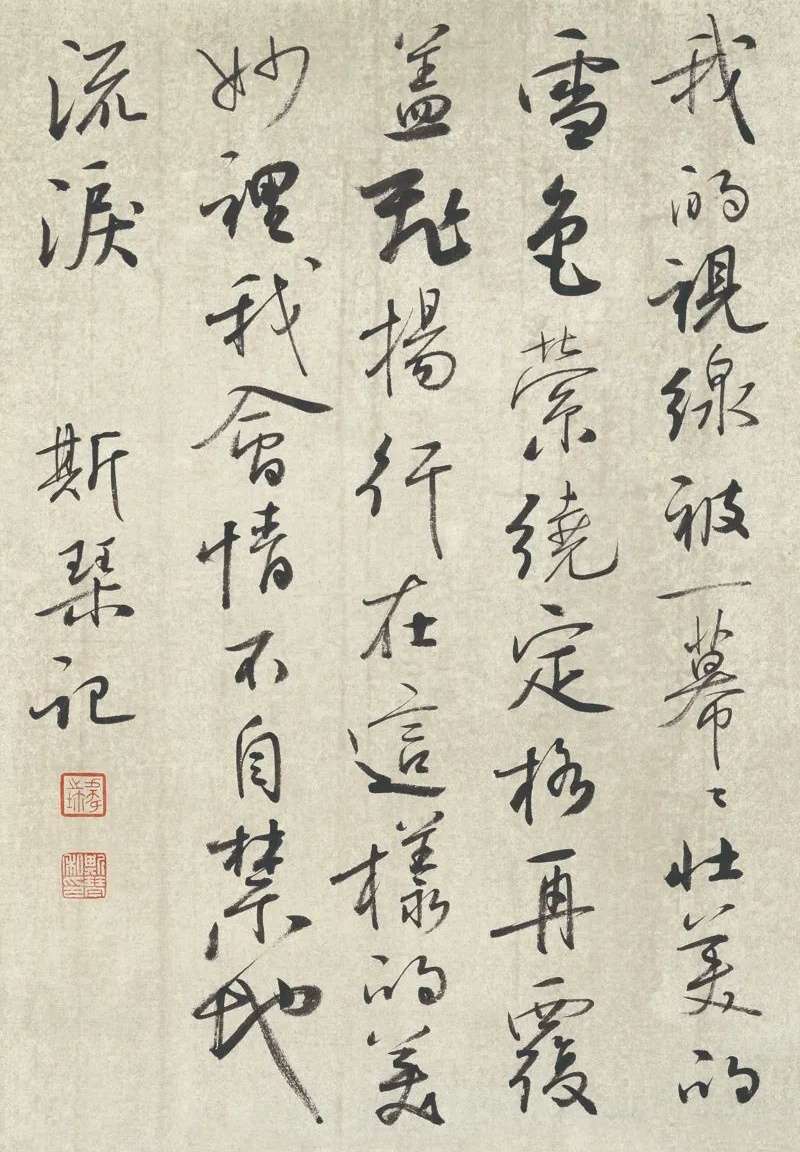 我的視線被一幕〻壯美的
雪色縈繞定格再覆
蓋飛揚行在這樣的美
妙裡我會情不自禁地
流淚 斯琴記